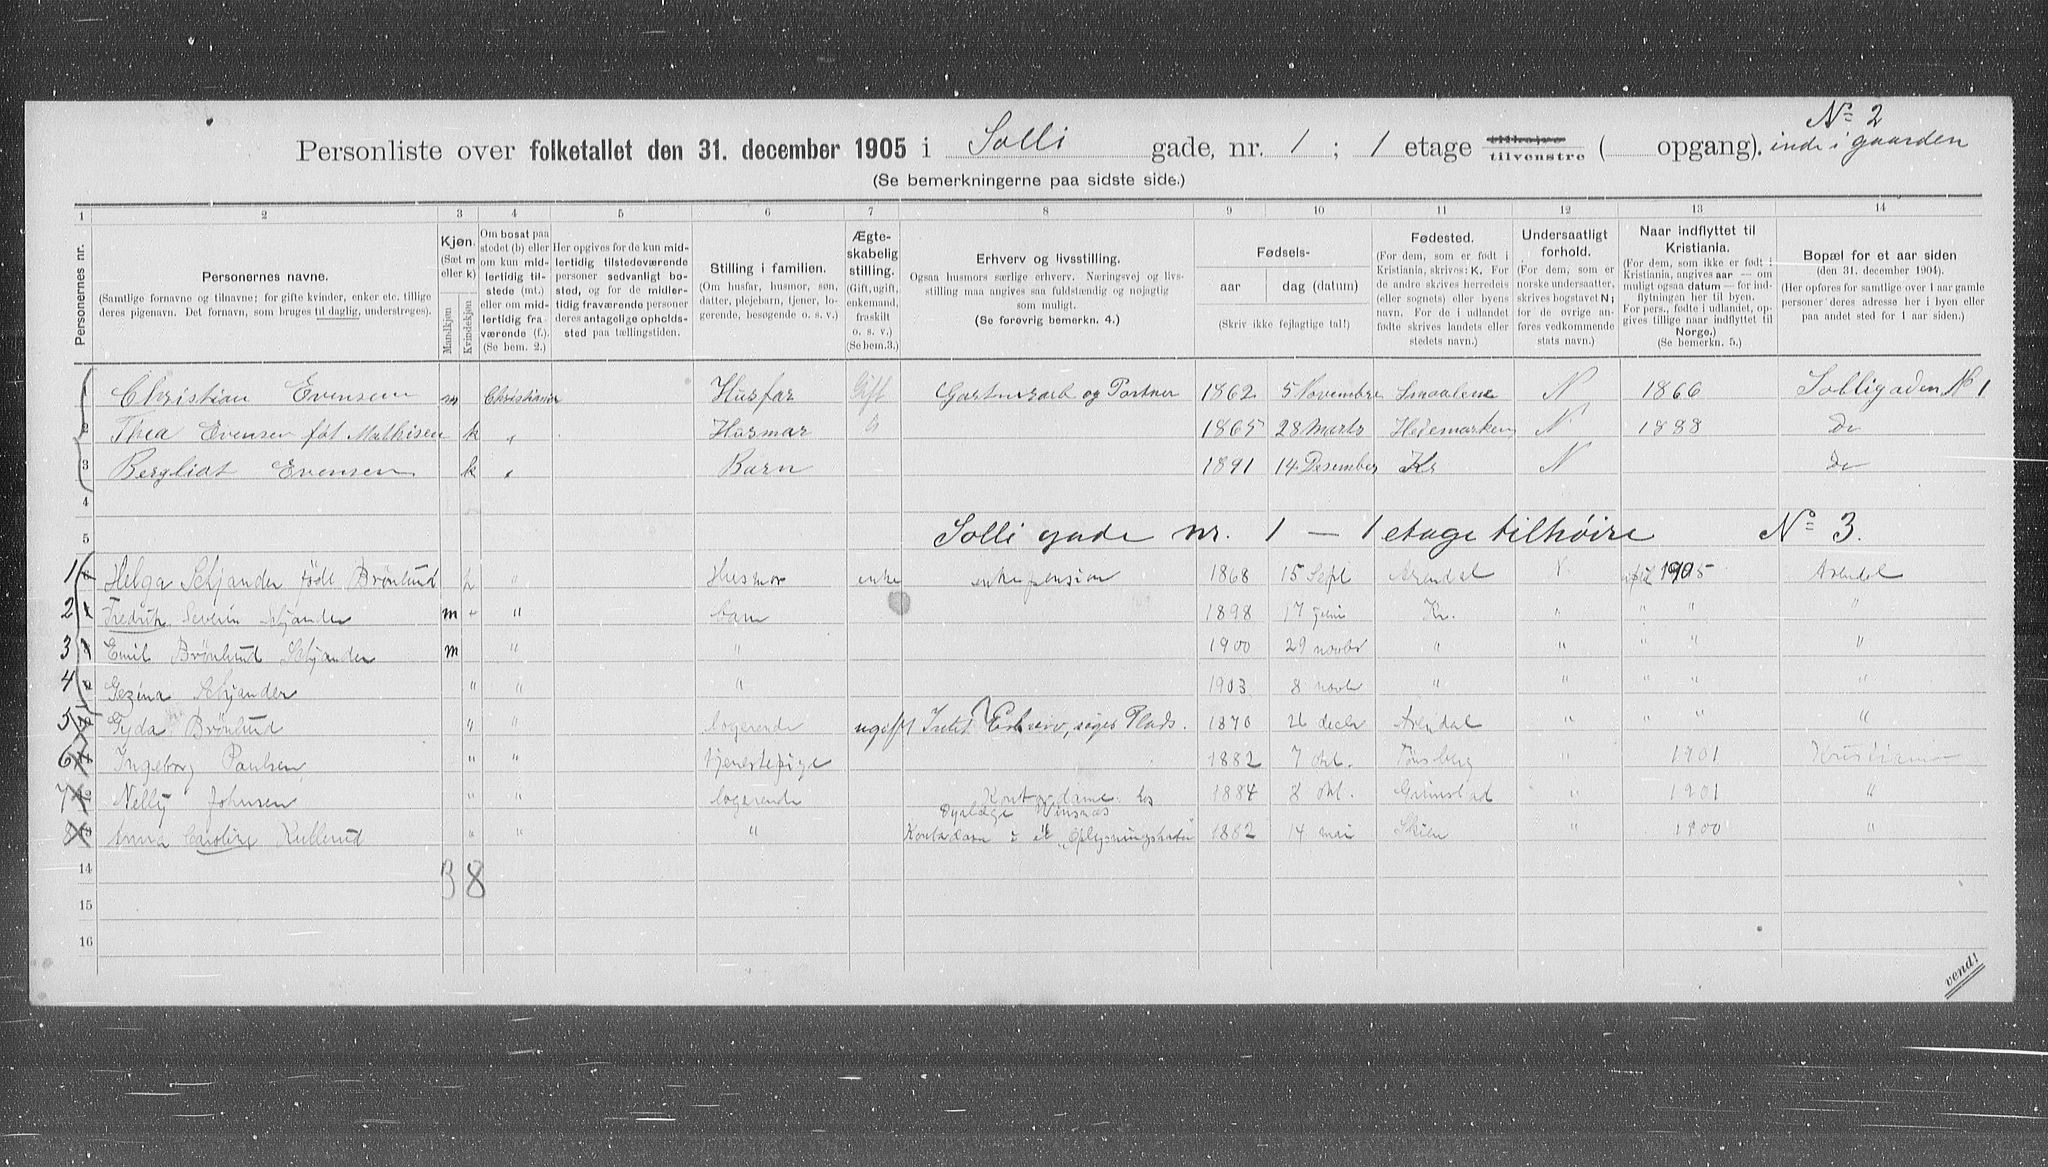 Nº 2
Personliste over folketallet den 31. december 1905 i Solli gade, nr. 1 ; 1 etage tilhøire tilvenstre ( opgang). inde i gaarden
(Se bemerkningerne paa sidste side.)
1 2 3 4 5 6 7 8 9 10 11 12 13 14
Personernes nr.
Personernes navne.
(Samtlige fornavne og tilnavne; for gifte kvinder, enker etc. tillige deres pigenavn. Det fornavn, som bruges til daglig, understreges).
Kjøn.
(Sæt m eller k)
Mandkjøn
Kvindekjøn
Om bosat paa stedet (b) eller om kun midlertidig tilstede (mt.) eller om midlertidig fraværende (f.). (Se bem. 2.)
Her opgives for de kun midlertidig tilstedeværende personer sedvanlig bosted, og for de midlertidig fraværende personer deres antagelige opholdssted paa tællingstiden.
Stilling i familien.
(Om husfar, husmor, søn, datter, plejebarn, tjener, logerende, besøgende o. s. v.)
Ægteskabelig stilling.
(Gift, ugift, enkemand, fraskilt o. s. v.)
(Se bem. 3.)
Erhverv og livsstilling.
Ogsaa husmors særlige erhverv. Næringsvej og livsstilling maa angives saa fuldstændig og nøjagtig som muligt.
(Se forøvrig bemerkn. 4.)
Fødsels-
aar
dag (datum)
(Skriv ikke fejlagtige tal!)
Fødested.
(For dem, som er født i Kristiania, skrives: K. For de andre skrives herredets (eller sognets) eller byens navn. For de i udlandet fødte skrives landets eller stedets navn.)
Undersaatligt forhold.
(For dem, som er norske undersaatter, skrives bogstavet N; for de øvrige anføres vedkommende stats navn.)
Naar indflyttet til Kristiania.
(For dem, som ikke er født i Kristiania, angives aar — om muligt ogsaa datum — for indflytningen her til byen. For pers., fødte i udlandet, opgives tillige naar indflyttet til Norge.)
(Se bemerkn. 5.)
Bopæl for et aar siden
(den 31. december 1904).
(Her opføres for samtlige over 1 aar gamle personer deres adresse her i byen eller paa andet sted for 1 aar siden.)
1 Christian Evensen m Christiania Husfar Gift Gartnerarb og Portner 1862 5 Novembre Smaalene N 1866 Solligaden Nº 1
2 Thea Evensen føt Mathisen k " Husmor 1865 28 Marts Hedemarken N 1888 Do
3 Bergliot Evensen k " Barn 1891 14 Desember Kr N Do
4
5 Solli gade nr. 1 — 1 etage tilhøire Nº 3.
1 Helga født Brønlund " Husmor enke enkepension 1868 15 Sept Arendal N. april 1905 Arendal
2 Fredrik Severin m " barn 1898 17 Kr. " " " "
3 Emil Brønlund m " " 1900 29 novbr " " " " "
4 Gezina " " " 1903 8 novbr " " " " "
5 Brønlund " " logerende ugift Intet Erhverv, søger Plads. 1870 26 decbr Arendal " " " "
6 Ingeborg Paulsen " " tjenestepige 1882 7 okt. Tønsberg " 1901 Kristiania
7 12 Nelly Johnsen " " logerende Kontordame hos 1884 8 okt. Grimstad " 1901 "
Dyrlæge
8 13 Anna Caroline Kullerud " " " i et "Oplysningskontor" 1882 14 mai Skien " 1900 "
14 3 8
15
16
vend!